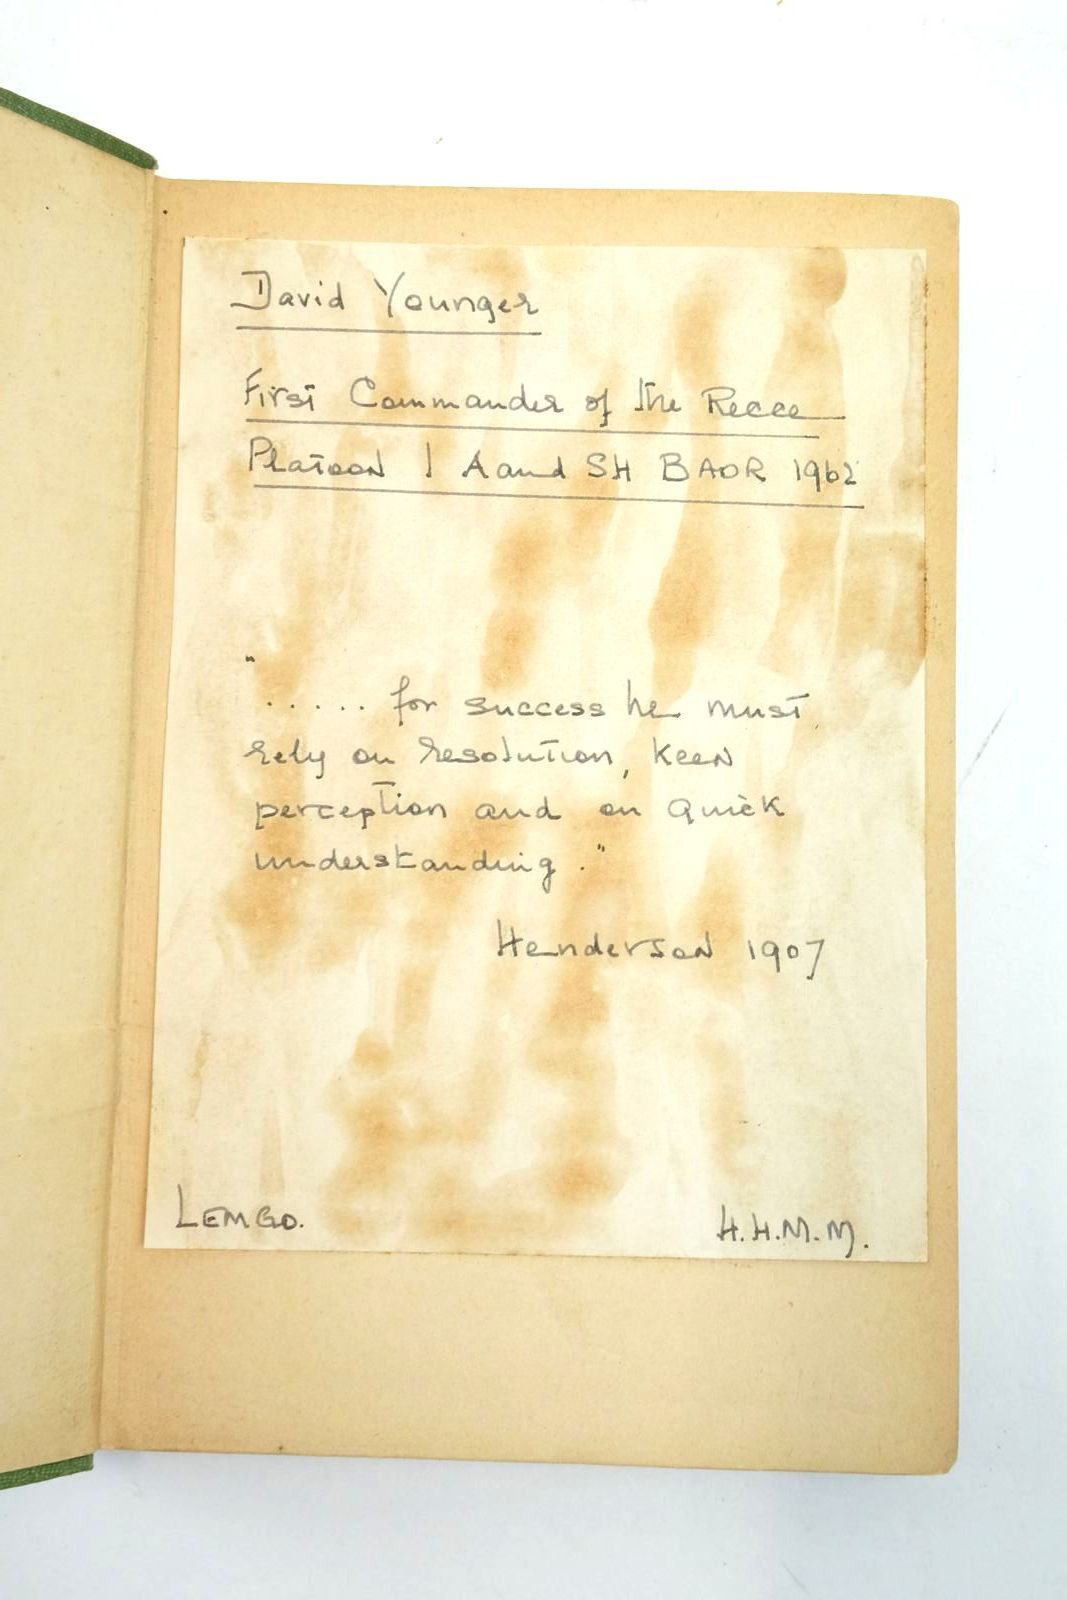 David Younger
First Commander of the Recce
Platoon 1 A and SH BAOR 1962
"..... for success he must
rely on resolution, keen
perception and on quick
understanding."
Henderson 1907
LEMGO.
H.H.M.M.